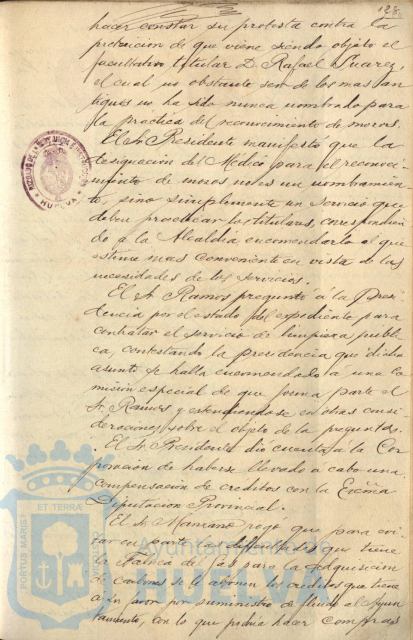 128.
hacer constar su protesta contra la
pretericion de que viene siendo objeto el
facultativo titular D. Rafael Suarez,
el cual no obstante ser de los mas an
tiguos no ha sido nunca nombrado para
la practica del reconocimiento de mozos.
El Sr. Presidente manifestó que la
designacion del Medico para el reconoci
miento de mozos no es un nombramien
to, sino simplemente un servicio que
deben practicar los titulares, correspondien
do á la Alcaldia encomendarlo al que
estime mas conveniente en vista de las
necesidades de los servicios.
El Sr. Ramos preguntó á la Presi
dencia por el estado del expediente para
contratar el servicio de limpieza publi
ca, contestando la presidencia que dicho
asunto se halla encomendado a una Co
mision especial de que forma parte el
Sr. Ramos y extendiendose en otras consi
deraciones sobre el objeto de la pregunta.
El Sr. Presidente dió cuenta á la Cor
poracion de haberse llevado a cabo una
compensacion de creditos con la Excma
Diputacion Provincial.
El Sr. Manzano rogó que para evi
tar en parte las dificultades que tiene
la Fabrica de Gas para la adquisicion
de carbones se le abonen los creditos que tiene
a su favor por suministro de fluido al Ayun
tamiento, con lo que podria hacer compras
HUELVA
PORTUS MARIS
ET TERRAE
CUSTODIA
Ayuntamiento de
HUELVA